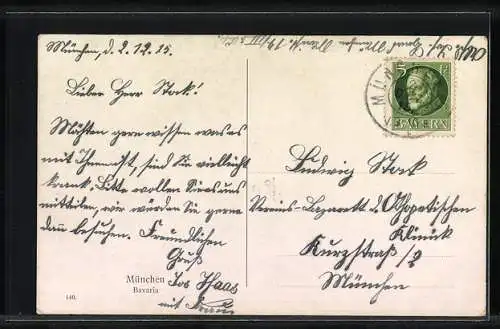 München, d. 2.12.15.
Lieber Herr Stock!
Möchten gern wissen was es
mit Ihnen ist, sind Sie vielleicht
krank. Bitte wollen Sie es uns
mitteilen, wir würden Sie gerne
dann besuchen. Freundlichen
Gruß
Jos Haas
mit Frau
München
Bavaria
140.
5
BAYERN
MÜN
Ludwig Stock
Vereins-Lazarett d. Othopetischen
Klinick
Kurzstraß/2
München